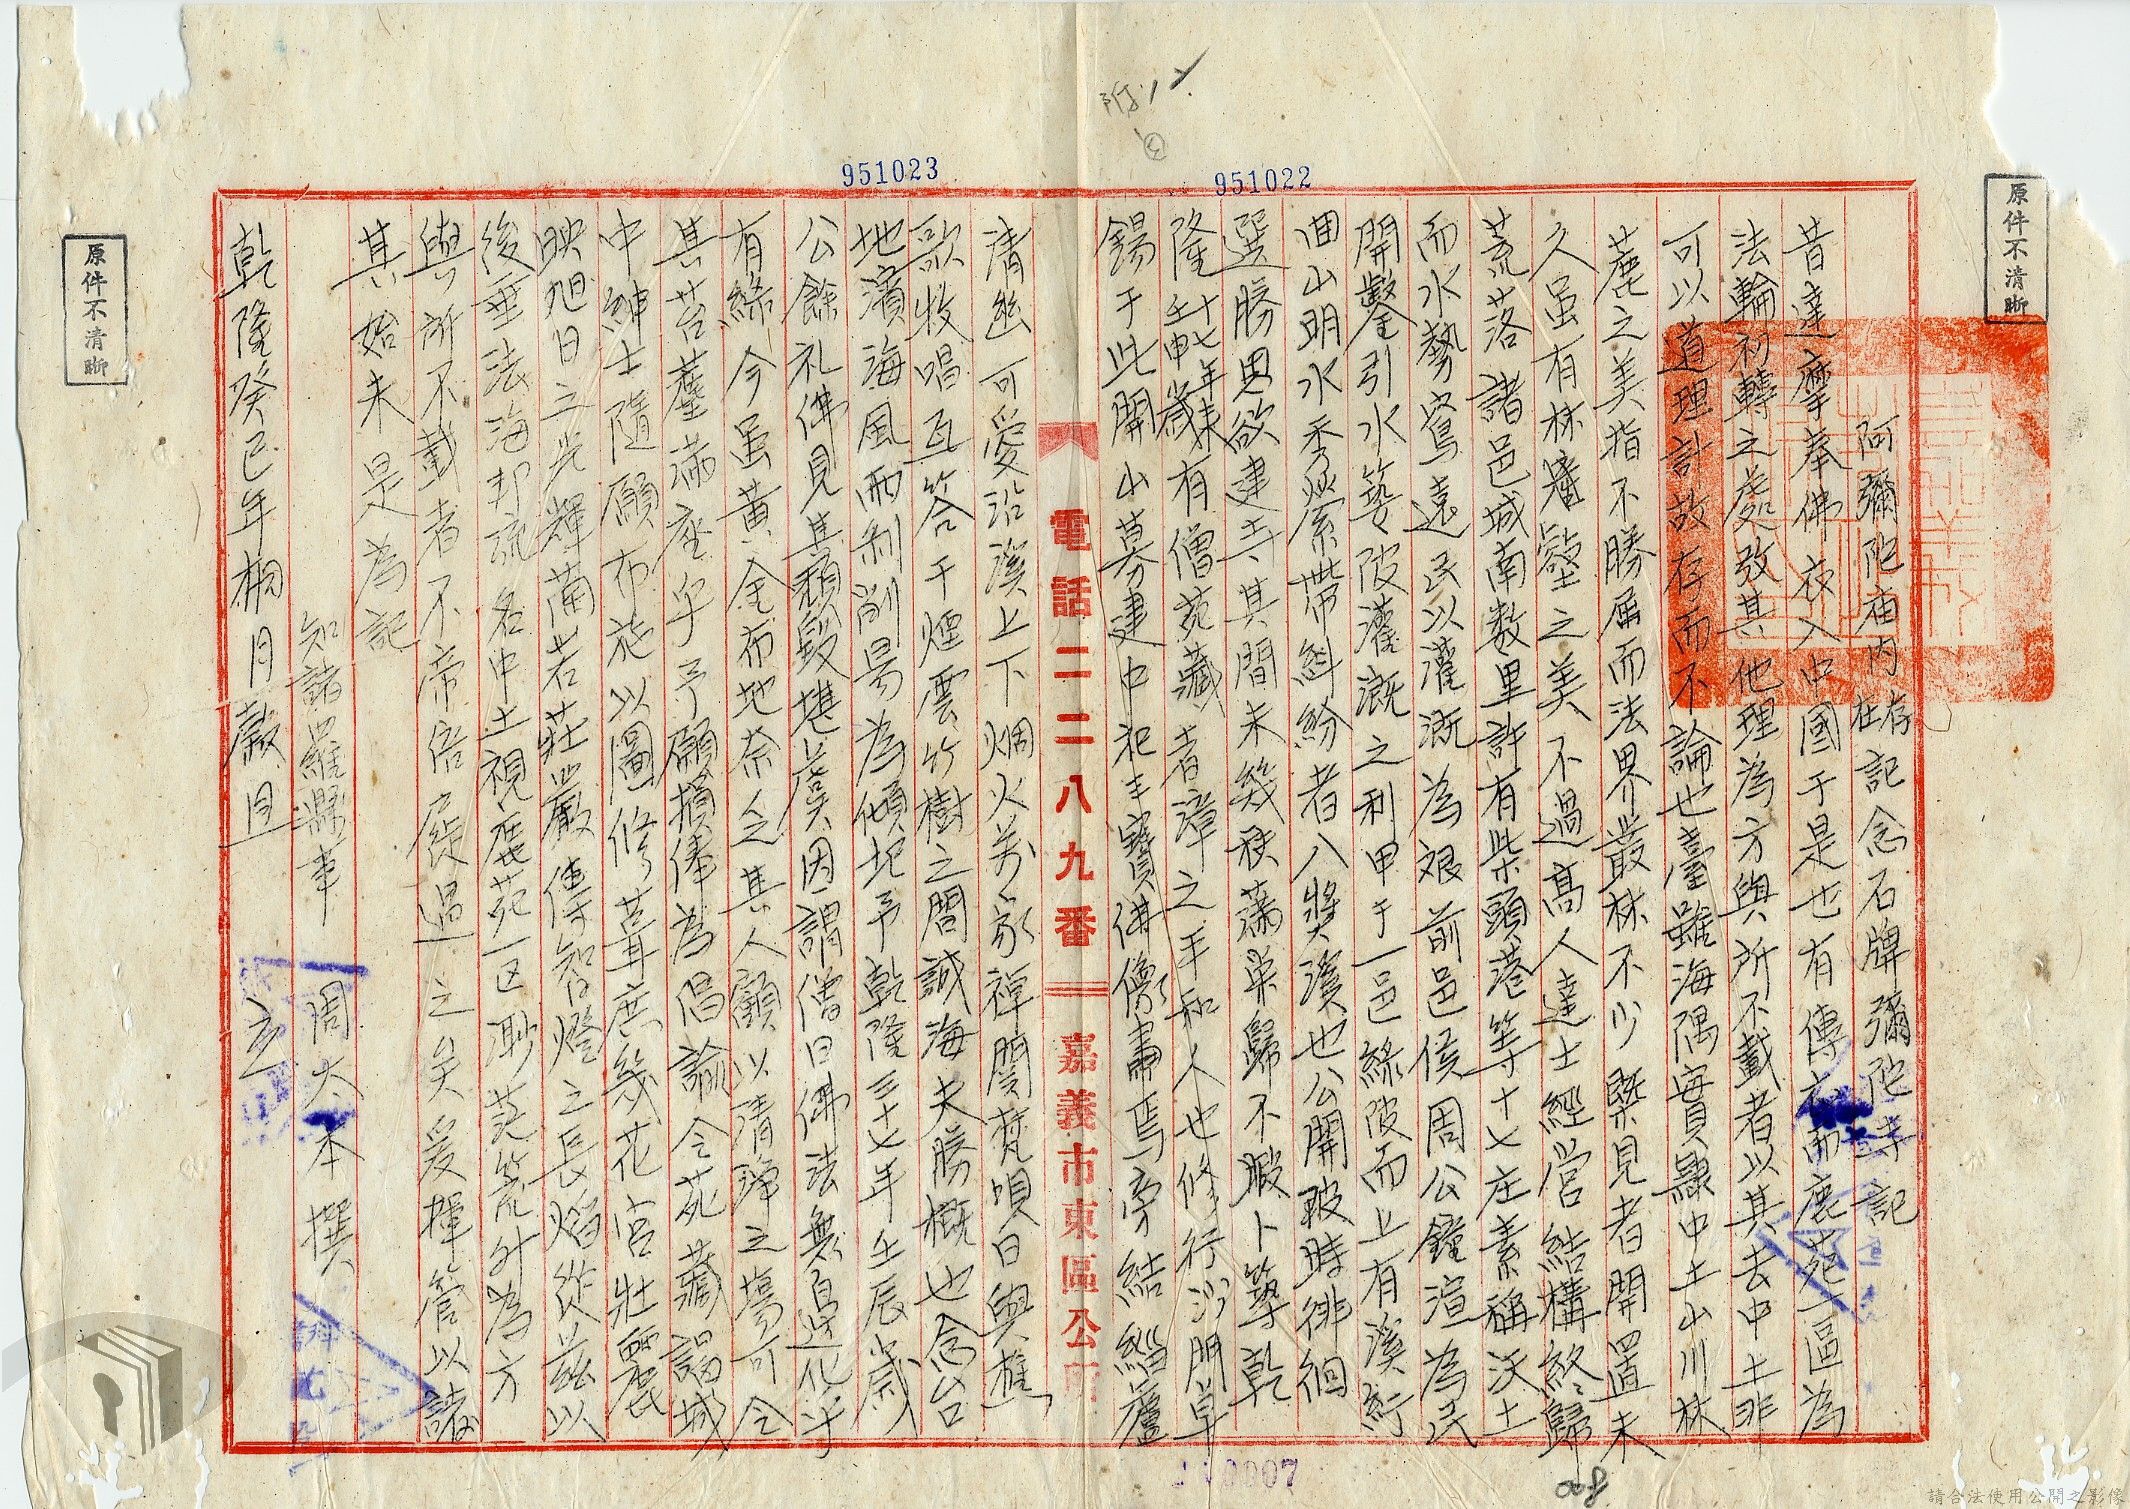 附12
②
951022
951023
原件不清晰
原件不清晰
阿彌陀庙内存在記念石牌彌陀寺記
昔達摩奉佛衣入中國于是也有傳衣而鹿苑一區為
法輪初轉之處攷其他理為方與所不載者以其去中土非
可以道理計故存而不論也臺雖海隅實隸中土山川林
麓之美指不勝屈而法界叢林不少槩見者開置未
久虽有林巒巖壑之美不過高人達士經营結構終歸
荒落諸邑城南数里許有柴頭港等十七庄素稱沃土
而水勢窵遠民以灌溉為艱前邑侯周公鐘瑄為民
開鑿引水築陂灌溉之利甲于一邑緣陂而上有溪紆
囬山明水秀縈帶斜紛者八獎溪也公開陂時徘徊
選勝思欲建寺其間未幾秩滿果歸不暇卜築乾
隆十七年歲未壬申有僧苑藏者漳之丰和人也修行沙門卓
錫于此開山募建中祀丰寶佛像肅焉旁結緇廬
清幽可愛沿溪上下烟火萬家禪関梵唄日與樵
歌牧唱互答于煙雲竹樹之間誠海夫勝概也念台
地濱海風雨剝削易為傾圯予乾隆三十七年壬辰歲
公餘礼佛見其頹毀堪虞因謂僧曰佛法無邊化乎
有緣今虽黄金布地奈之其人顧以清淨之塲可令
其苔塵满座乎予願損俸為倡諭令苑藏謁城
中紳士隨願布施以圖修葺庶幾花宮壯麗
映旭日之光輝蘭若莊嚴傳智燈之長焰從茲以
後垂法海邦流名中土視鹿苑一区渺茫荒外為方
與所不載者不啻倍屣過之矣爰揮管以誌
其始末是為記
知諸羅縣事 周大本撰
乾隆癸巳年桐月穀旦 立
電話二二八九番
嘉義市東區公所
0007
請合法使用公開之影像